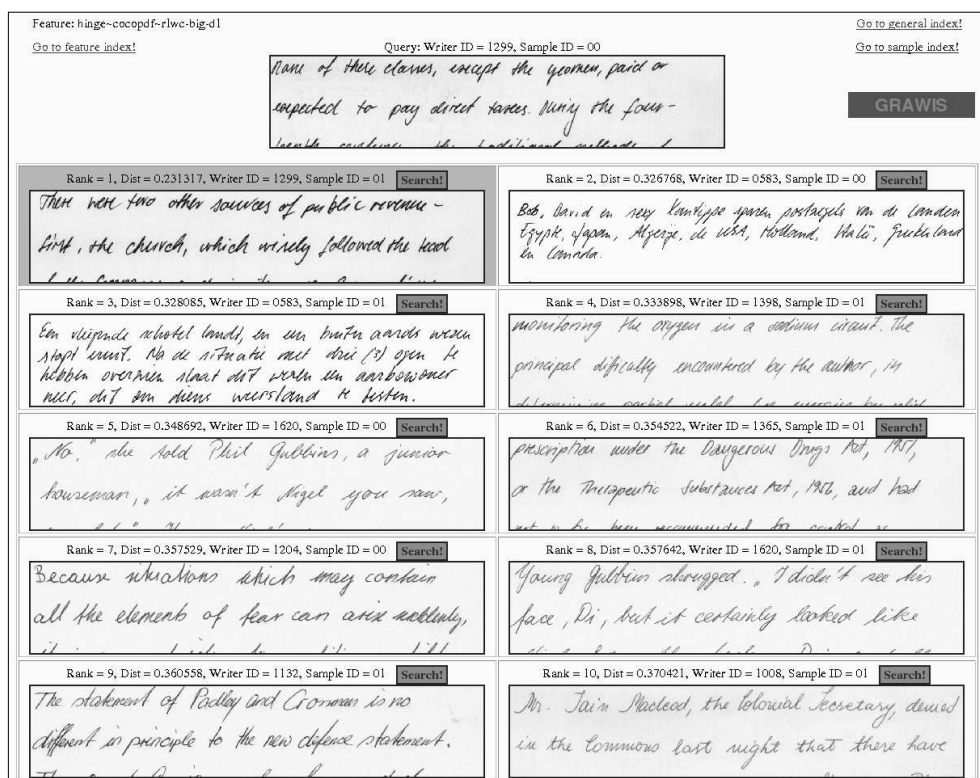 Feature: hinge~cocopdf~rlwc-big-d1
Go to general index!
Go to feature index!
Query: Writer ID = 1299, Sample ID = 00
Go to sample index!
None of these classes, except the yeomen, paid or
expected to pay direct taxes. During the four-
GRAWIS
Rank = 1, Dist = 0.231317, Writer ID = 1299, Sample ID = 01 Search!
There were two other sources of public revenue-
first, the church, which wisely followed the lead
Rank = 2, Dist = 0.326768, Writer ID = 0583, Sample ID = 00 Search!
Bob, David en sexy Xantippe sparen postzegels van de landen
Egypte, Japan, Algerije, de USA, Holland, Italië, Griekenland
en Canada.
Rank = 3, Dist = 0.328085, Writer ID = 0583, Sample ID = 01 Search!
Een vliegende schotel landt, en een buiten aards wezen
stapt eruit. Na de situatie met drie (3) ogen te
hebben overzien slaat dit wezen een aardbewoner
neer, dit om diens weerstand te testen.
Rank = 4, Dist = 0.333898, Writer ID = 1398, Sample ID = 01 Search!
monitoring the oxygen in a sodium circuit. The
principal difficulty encountered by the author, in
Rank = 5, Dist = 0.348692, Writer ID = 1620, Sample ID = 00 Search!
„No," she told Phil Gubbins, a junior
houseman, „it wasn't Nigel you saw,
Rank = 6, Dist = 0.354522, Writer ID = 1365, Sample ID = 01 Search!
prescription under the Dangerous Drugs Act, 1951,
or the Therapeutic Substances Act, 1956, and had
Rank = 7, Dist = 0.357529, Writer ID = 1204, Sample ID = 00 Search!
Because situations which may contain
all the elements of fear can arise suddenly,
Rank = 8, Dist = 0.357642, Writer ID = 1620, Sample ID = 01 Search!
Young Gubbins shrugged. „I didn't see his
face, Di, but it certainly looked like
Rank = 9, Dist = 0.360558, Writer ID = 1132, Sample ID = 01 Search!
The statement of Padley and Crosman is no
different in principle to the new defence statement.
Rank = 10, Dist = 0.370421, Writer ID = 1008, Sample ID = 01 Search!
Mr. Iain Macleod, the Colonial Secretary, denied
in the Commons last night that there have